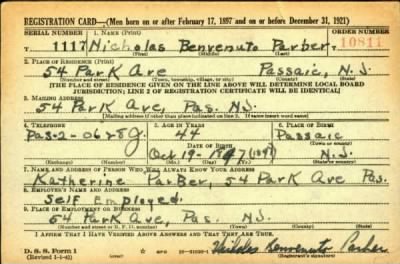 REGISTRATION CARD—(Men born on or after February 17, 1897 and on or before December 31, 1921)
SERIAL NUMBER 1. NAME (Print) ORDER NUMBER
1117 Nicholas Benvenuto Parber 10811
(First) (Middle) (Last)
2. PLACE OF RESIDENCE (Print)
54 Park Ave Passaic, N.J.
(Number and street) (Town, township, village, or city) (County) (State)
[THE PLACE OF RESIDENCE GIVEN ON THE LINE ABOVE WILL DETERMINE LOCAL BOARD
JURISDICTION; LINE 2 OF REGISTRATION CERTIFICATE WILL BE IDENTICAL]
3. MAILING ADDRESS
54 Park Ave, Pas. N.J.
[Mailing address if other than place indicated on line 2. If same insert word same]
4. TELEPHONE 5. AGE IN YEARS 6. PLACE OF BIRTH
Pas-2-0628J 44 Passaic
DATE OF BIRTH (Town or county)
Oct 19- 1897 (1897) N.J.
(Exchange) (Number) (Mo.) (Day) (Yr.) (State or country)
7. NAME AND ADDRESS OF PERSON WHO WILL ALWAYS KNOW YOUR ADDRESS
Katherine Parber, 54 Park Ave Pas.
8. EMPLOYER'S NAME AND ADDRESS
Self Employed
9. PLACE OF EMPLOYMENT OR BUSINESS
54 Park Ave, Pas. N.J.
(Number and street or R. F. D. number) (Town) (County) (State)
I AFFIRM THAT I HAVE VERIFIED ABOVE ANSWERS AND THAT THEY ARE TRUE.
D. S. S. Form 1 GPO Nicholas Benvenuto Parber
(Revised 1-1-42) (Registrant's signature)